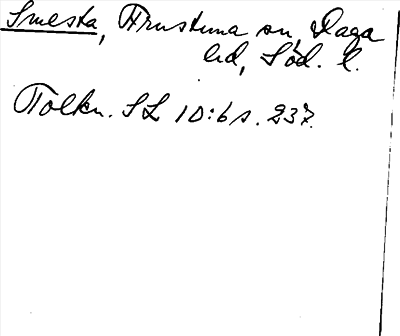 Smesta, Trustuna sn, Daga
hd, Söd. l.
Tolkn. SL 10:6 s. 237.